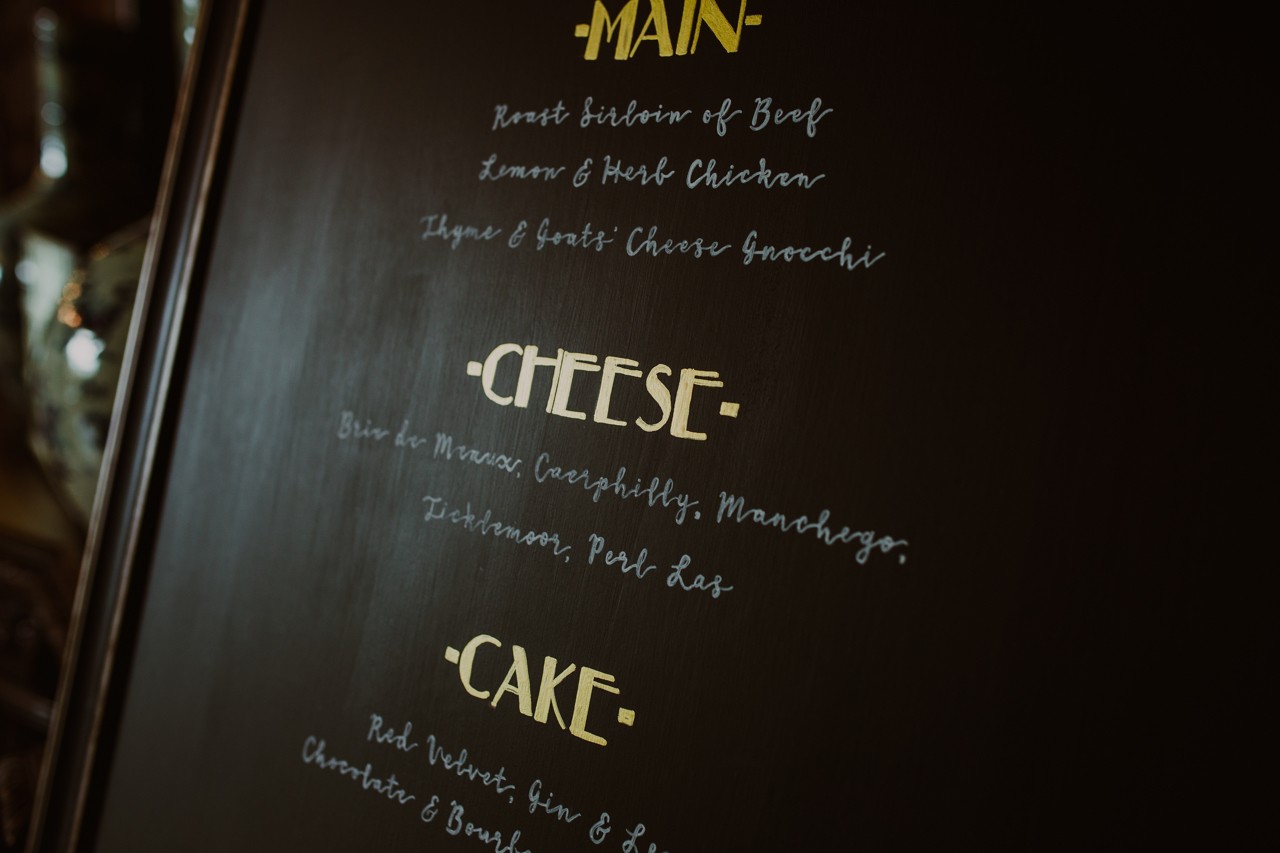 -MAIN-
Roast Sirloin of Beef
Lemon & Herb Chicken
Thyme & Goats' Cheese Gnocchi
-CHEESE-
Brie de Meaux, Caerphilly, Manchego,
Ticklemoor, Perl Las
-CAKE-
Red Velvet, Gin &
Chocolate &